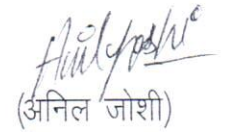 Anil Joshi
(अनिल जोशी)